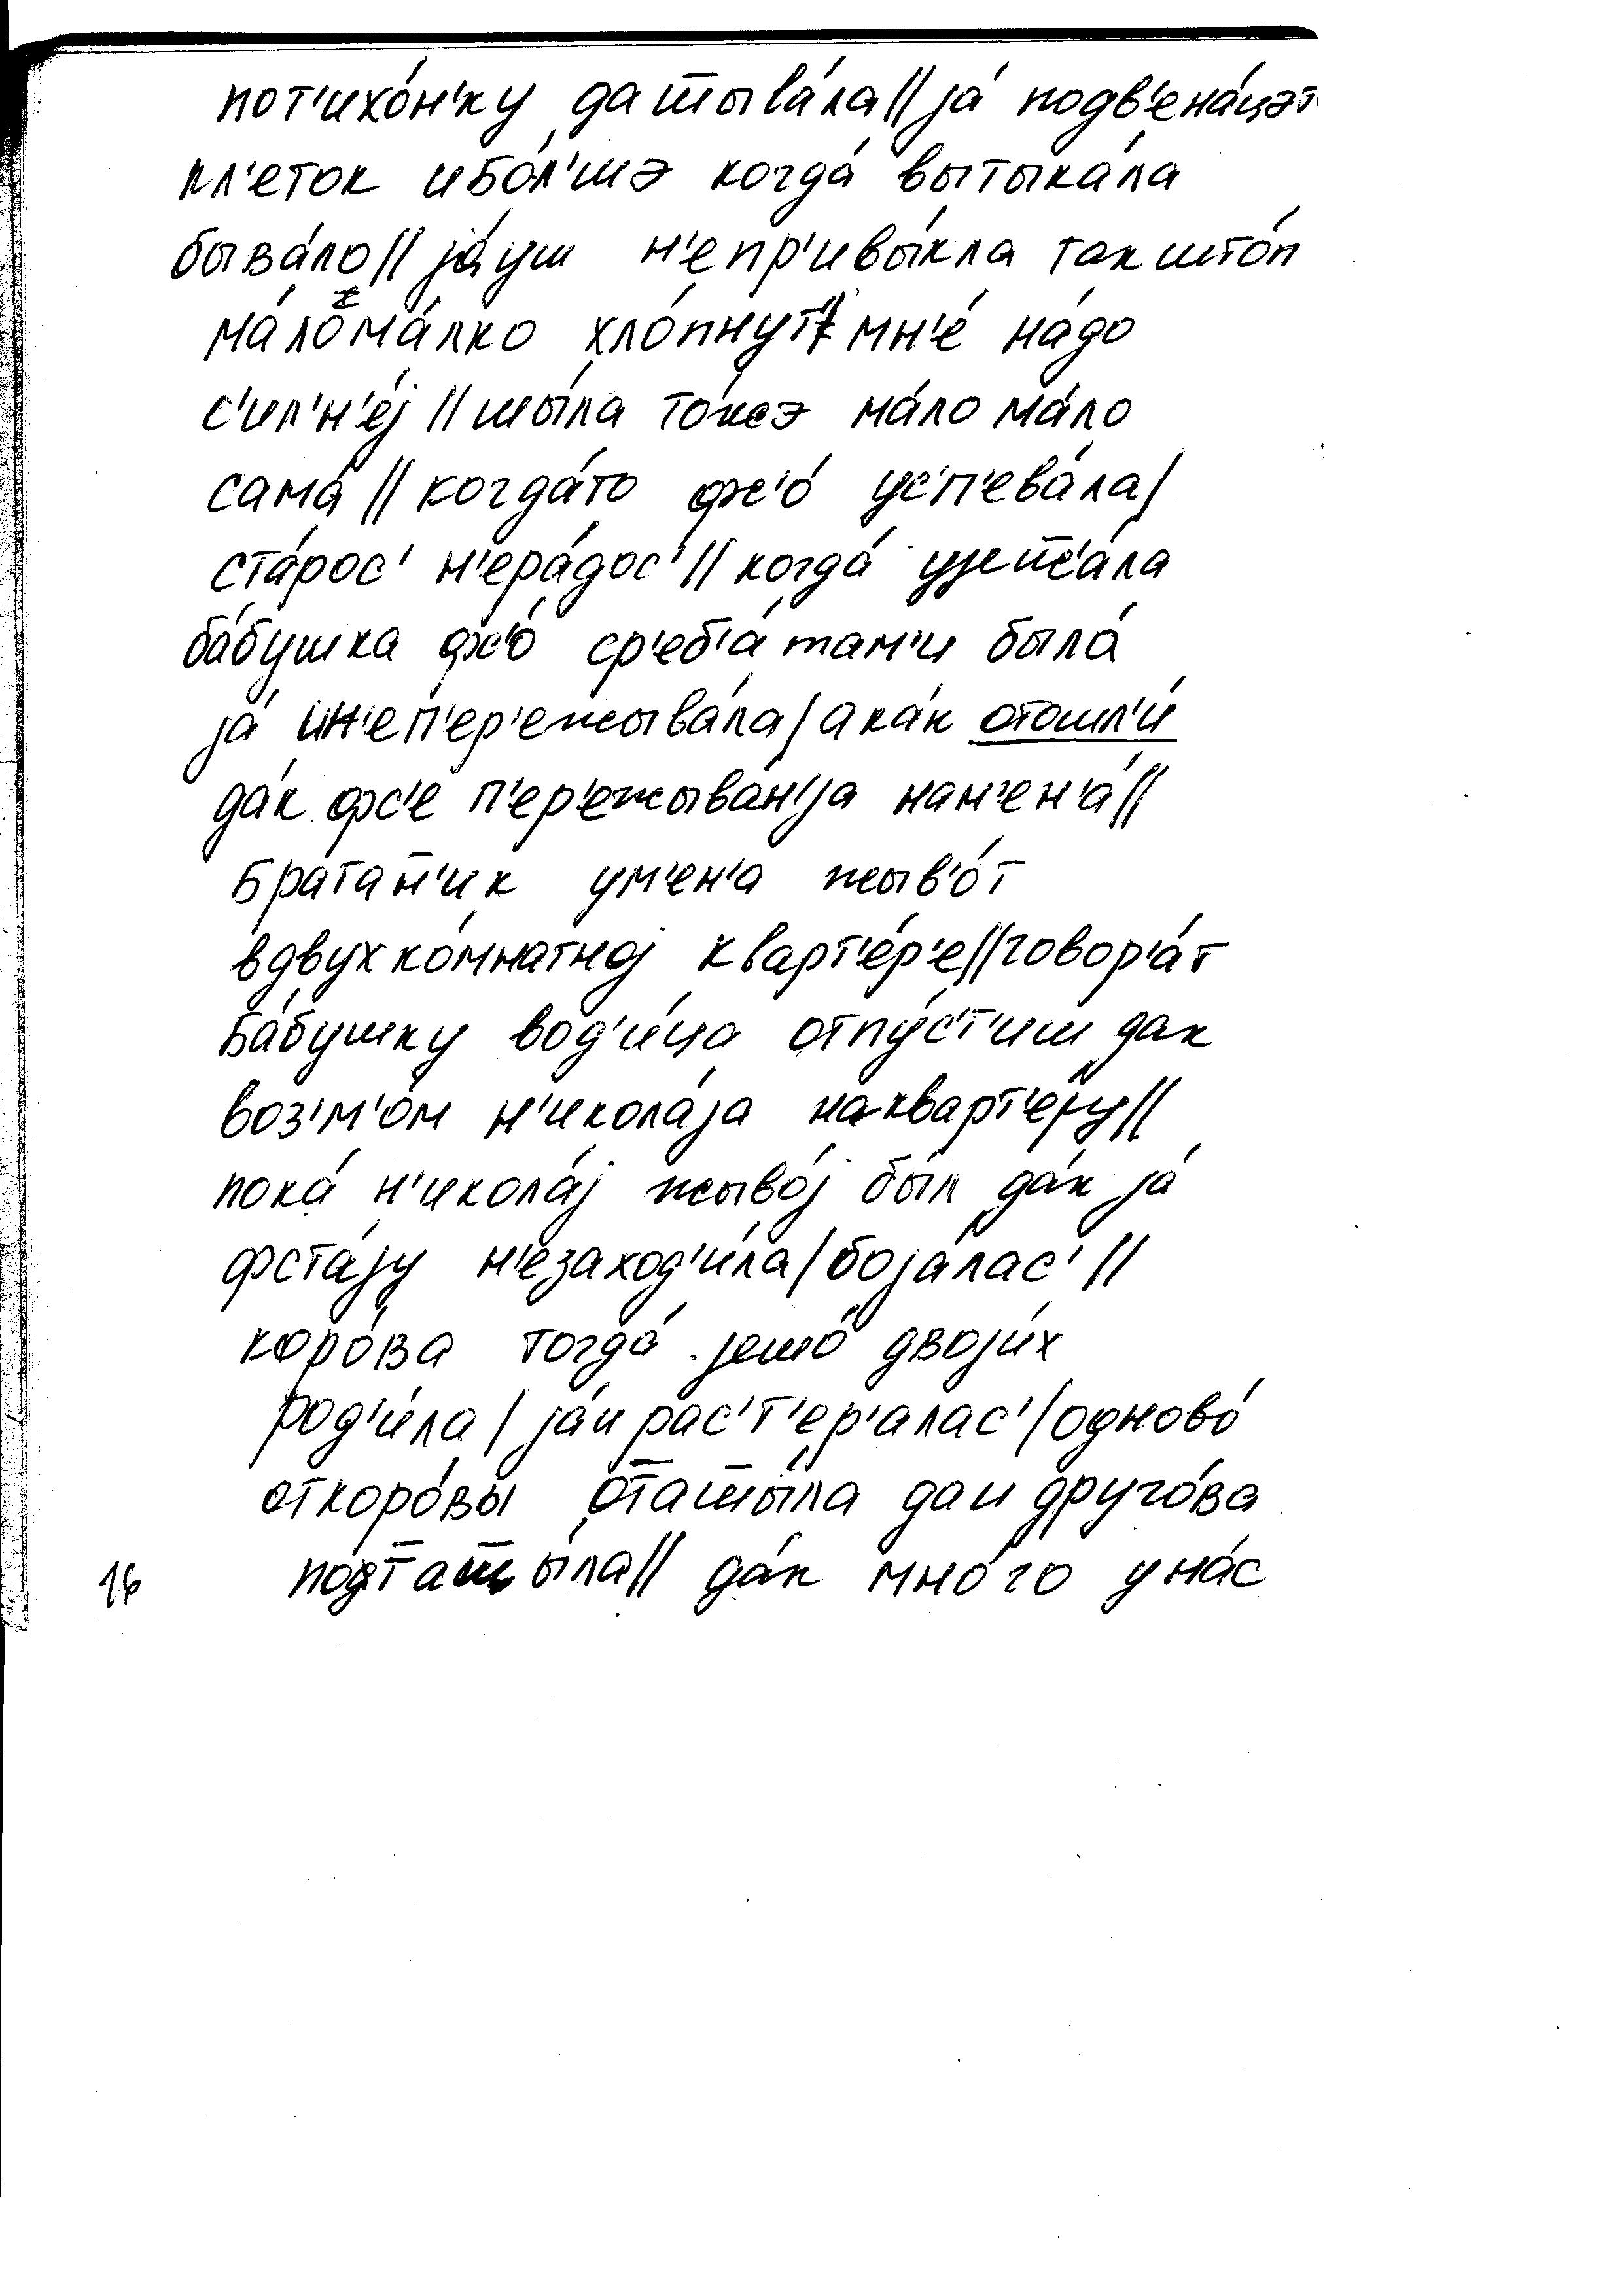 пот'ихо́н'ку да т̅ыва́ла // jа́ подв'ена́цэт
пл'еток и бо́л'шэ когда́ вытыка́ла
быва́ло // jа́ уш н'епр'ивы́кла так што́п
ма́лома́лко хло́пнут' / мн'е́ на́до
с'ил'н'е́j // шы́ла то́жэ ма́ло ма́ло
сама́ // когда́то фс'о́ ус'п'ева́ла /
ста́рос' н'ера́дос' // когда́
ба́бушка фс'о́ ср'еб'а́там'и была́
jа́ ин'еп'ер'ежыва́ла / а ка́к отошл'и́
да́к фс'е п'ер'ежыва́н'jа нам'ен'а́ //
братан'ик ум'ен'а жыв'о́т
вдвухко́мнатноj кварт'е́р'е // говор'а́т
ба́бушку вод'и́ца отпу́с'т'иш дак
воз'м'о́м н'икола́jа накварт'е́ру //
пока́ н'икола́j жыво́j бы́л да́к jа́
фста́jу н'езаход'и́ла / боjа́лас' //
коро́ва тогда́ jешо́ двоjи́х
род'и́ла / jа́и рас'т'ер'а́лас' / одново́
откоро́вы от̅ат̅ы́ла даи друго́ва
подт̅ат̅ы́ла // да́к мно́го уна́с
16